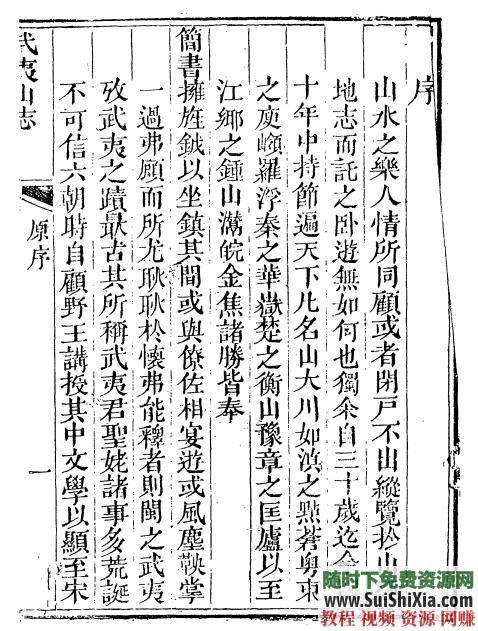 序
山水之樂人情所同顧或者閉戶不出縱覽於山
地志而託之卧遊無如何也獨余自三十歲迄今
十年中持節遍天下凡名山大川如滇之點蒼粤東
之庾嶺羅浮秦之華嶽楚之衡山豫章之匡廬以至
江鄉之鍾山灊皖金焦諸勝皆奉
簡書擁旌鉞以坐鎮其間或與僚佐相宴遊或風塵鞅掌
一過弗顧而所尤耿耿於懷弗能釋者則閩之武夷
攷武夷之蹟最古其所稱武夷君聖姥諸事多荒誕
不可信六朝時自顧野王講授其中文學以顯至宋
武夷山志
原序
一
随时下免费资源网
www.SuiShiXia.com
教程 视频 资源 网赚